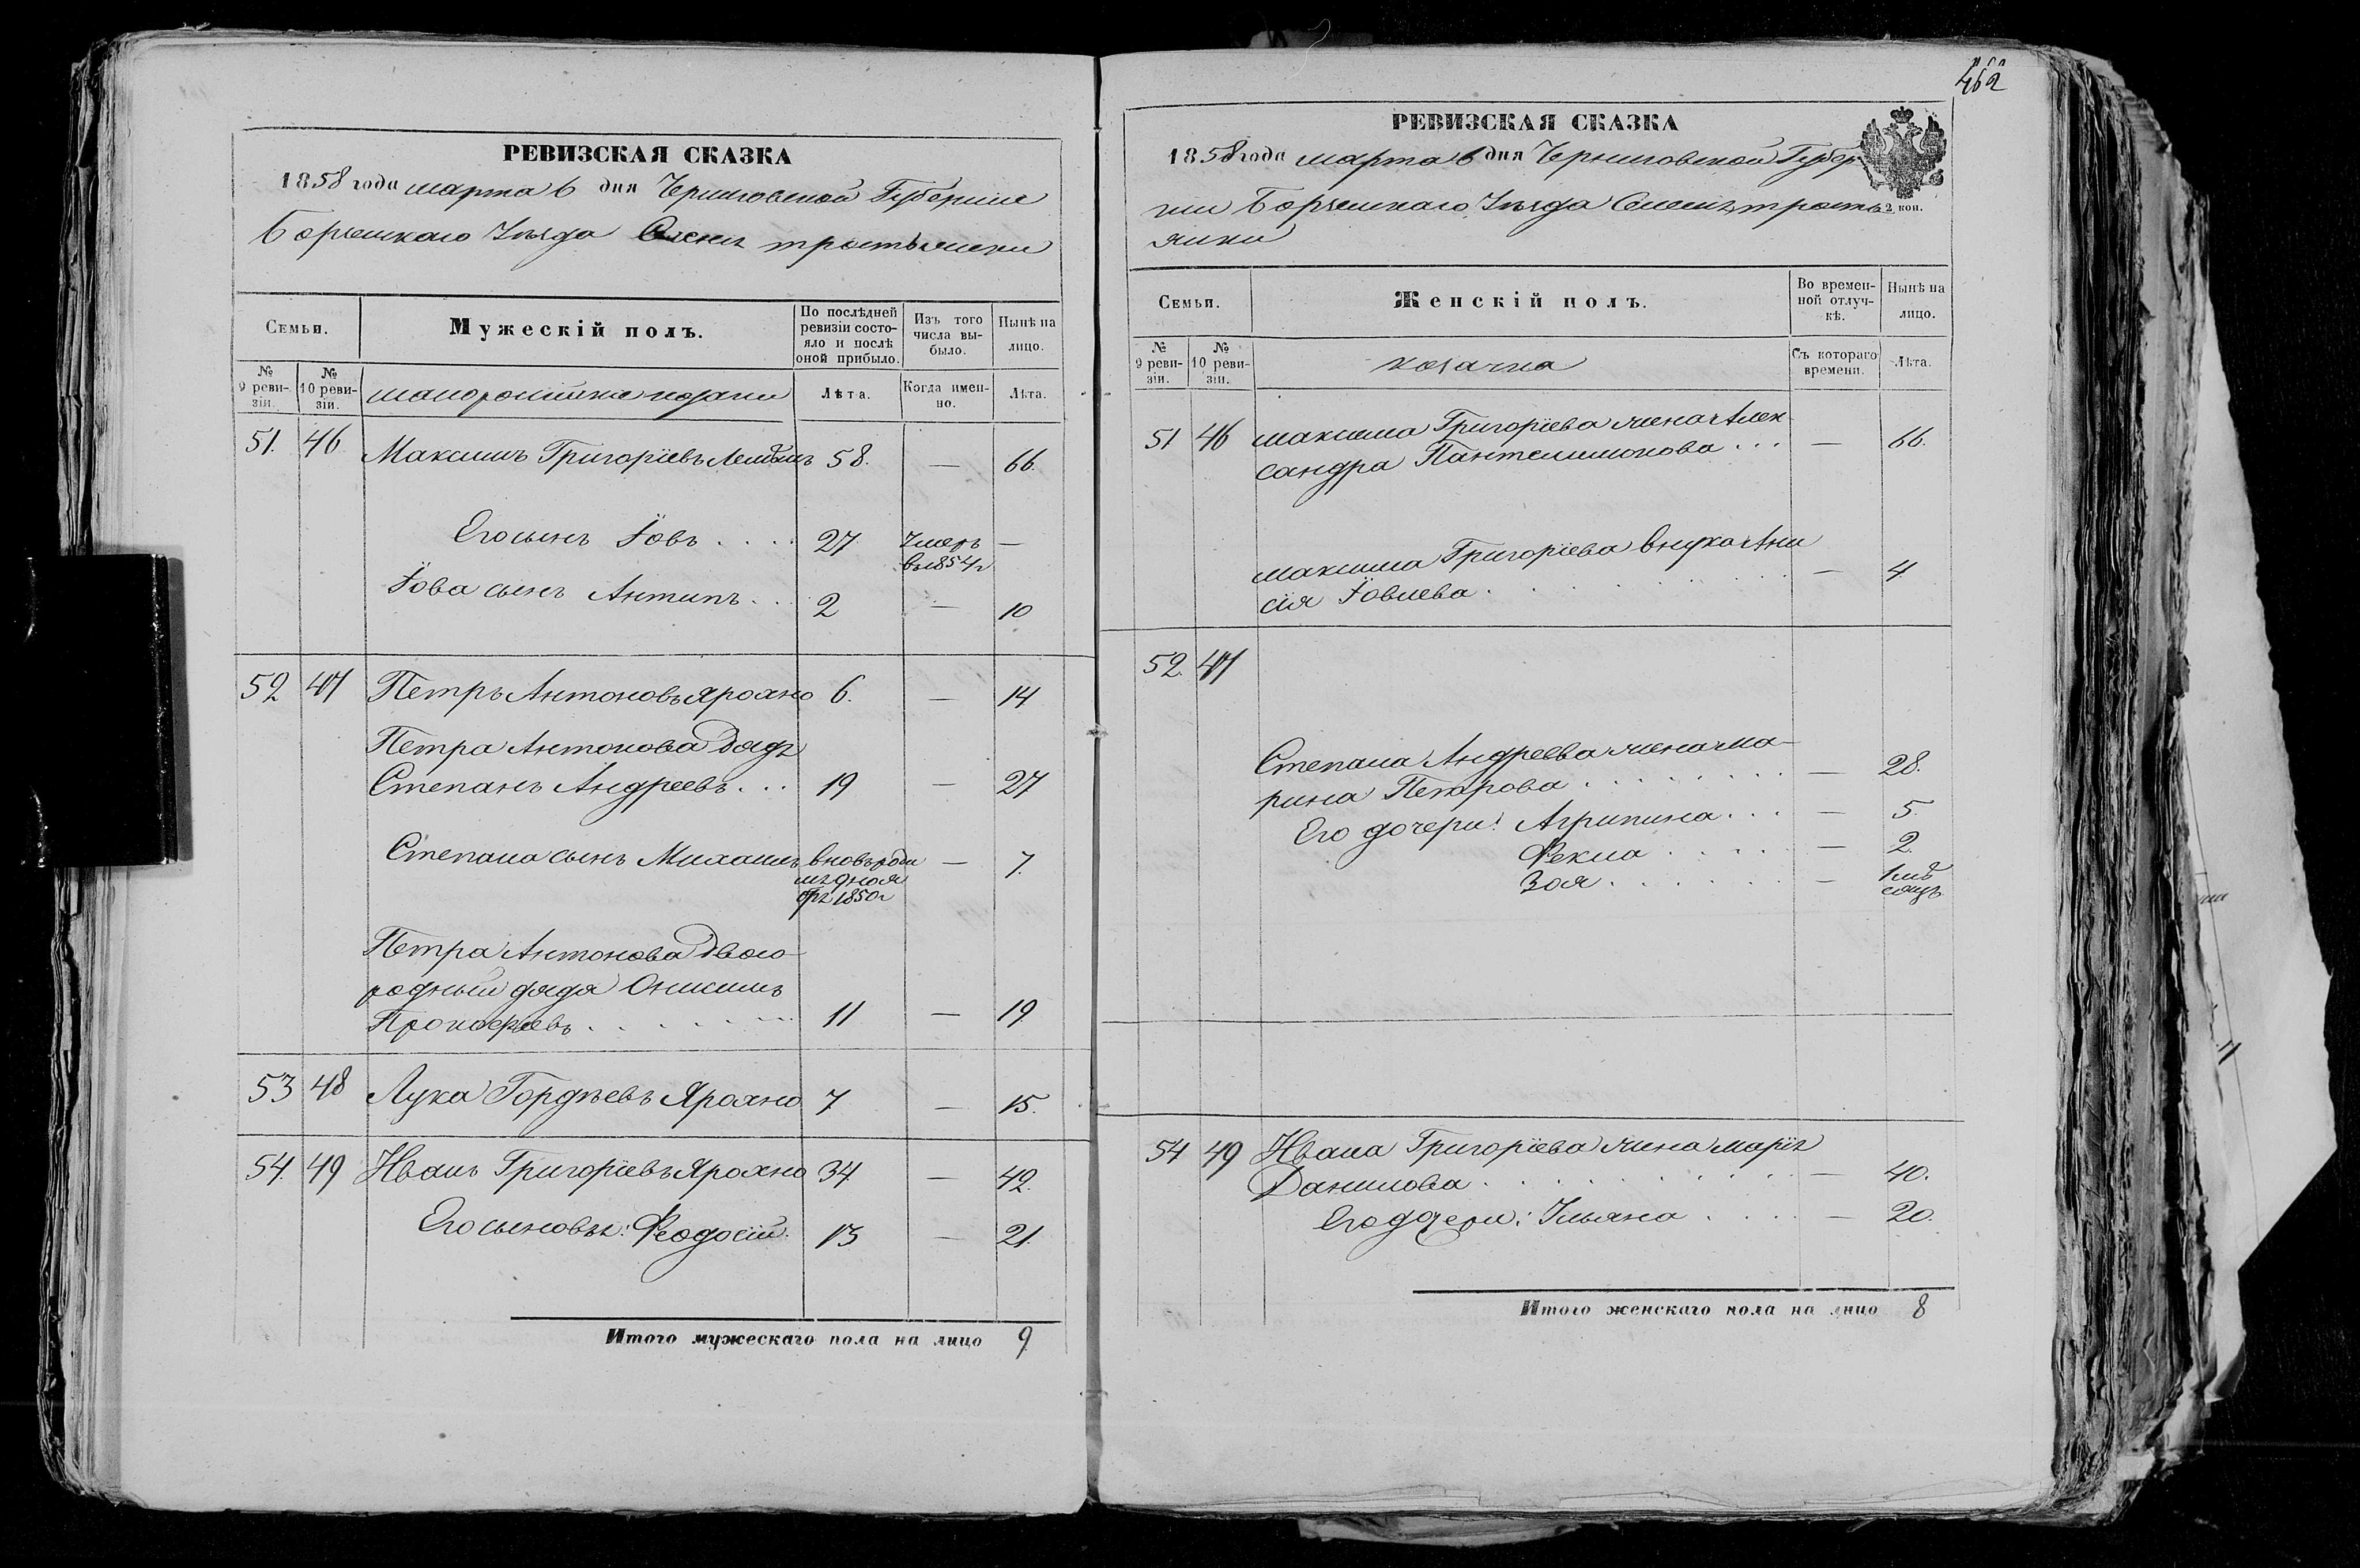 РЕВИЗСКАЯ СКАЗКА
1858 года марта 6 дня Черниговской Губерніи
Борзенскаго Уѣзда тростянки
Семьи.
Мужескій полъ.
По послѣдней ревизіи состояло и послѣ оной прибыло.
Изъ того числа выбыло.
Нынѣ на лицо.
№ 9 ревизіи.
№ 10 ревизіи.
малоросійские козаки
Лѣта.
Когда именно.
Лѣта.
51. 46 Максимъ Григоріевъ 58. — 66.
Его сынъ Іовъ .... 27 Умеръ —
въ 1854 г
Іова сынъ Антипъ... 2 — 10
52 47 Петръ Антоновъ Ярохно 6. — 14
Петра Антонова дядя
Степанъ Андреевъ... 19 — 27
Степана сынъ Михаилъ вновь роди — 7.
1850 г
Петра Антонова двою-
родный дядя Онисимъ
Прокофіевъ....... 11 — 19
53 48 Лука Гордѣевъ Ярохно 7 — 15.
54. 49 Иванъ Григоріевъ Ярохно 34 — 42.
Его сыновья: Феодосій. 13 — 21.
Итого мужескаго пола на лицо 9.
462
РЕВИЗСКАЯ СКАЗКА
1858 года марта 6 дня Черниговской Губер-
ніи Борзенскаго Уѣзда трость
янки
2 коп.
Семьи.
Женскій полъ.
Во временной отлучкѣ.
Нынѣ на лицо.
№ 9 ревизіи.
№ 10 ревизіи.
козачка
Съ котораго времени.
Лѣта.
51 46 Максима Григоріева жена Алек-
сандра Пантелимонова... — 66.
Максима Григоріева внука Ани
сія Іовлева....... — 4.
52. 47
Степана Андреева жена Ма-
рина Петрова........ — 28.
Его дочери: Агрипина... — 5.
Фекла..... — 2.
Зоя....... — 1 мѣ
сяцъ
54 49 Ивана Григоріева жена Марія
Данилова........ — 40.
Его дочери: Ульяна.... — 20.
Итого женскаго пола на лицо 8